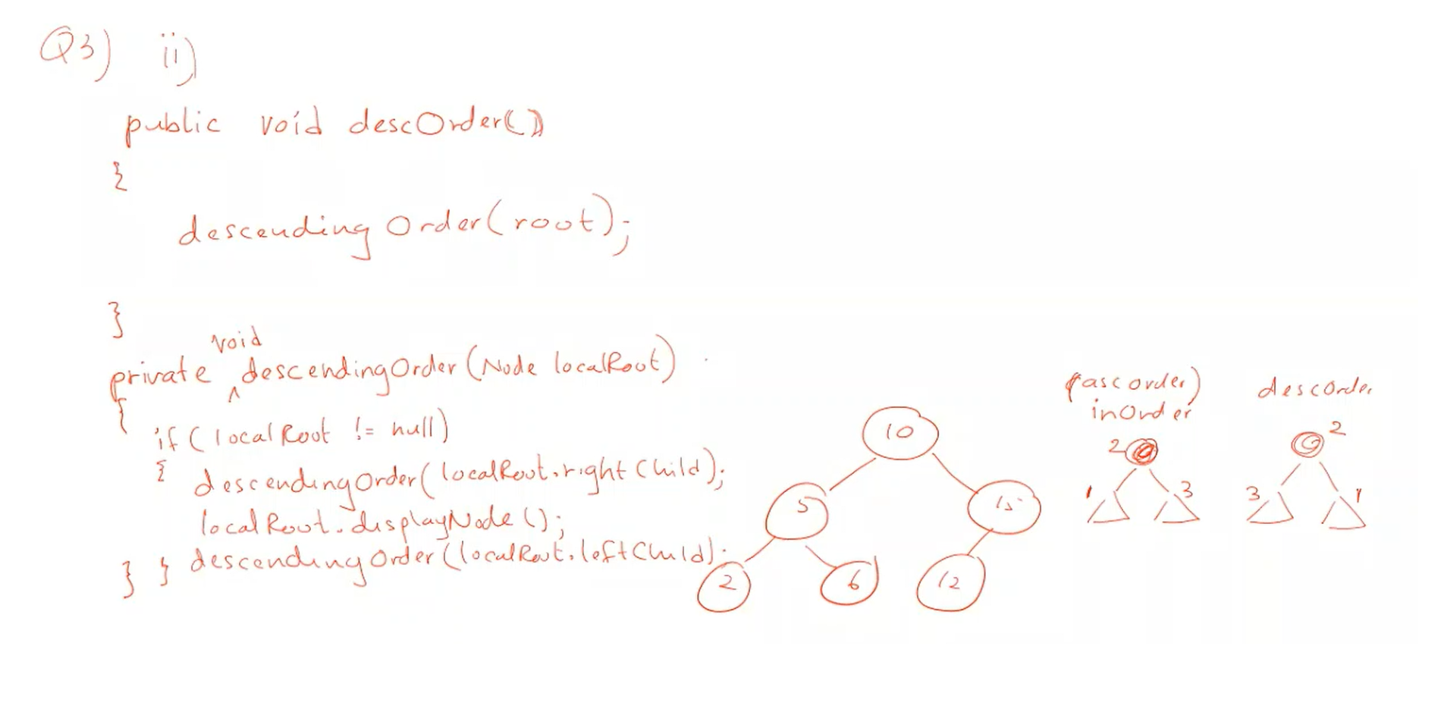 Q3) ii)
public void descOrder()
{
descendingOrder(root);
}
void
private ^ descendingOrder(Node localRoot)
{
if (localRoot != null)
{ descendingOrder(localRoot.rightChild);
localRoot.displayNode();
} } descendingOrder(localRoot.leftChild);
10
5 15
2 6 12
(asc order) descOrder
inOrder
2 2
1 3 3 1